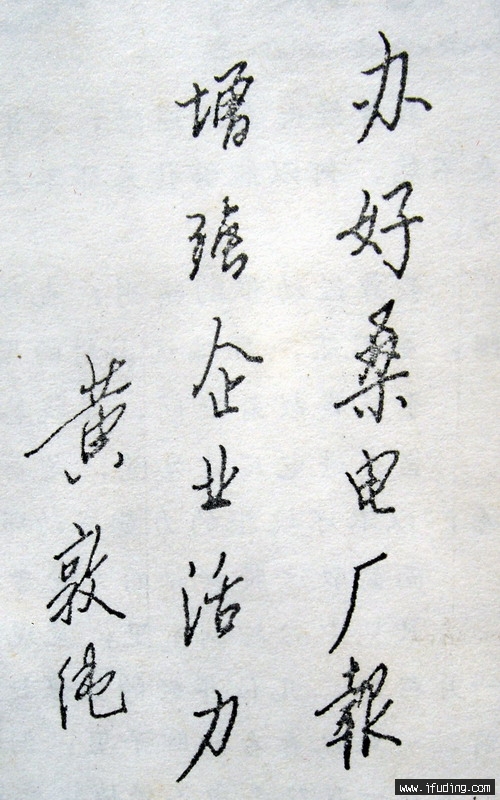 办好桑电厂報
增强企业活力
黄敦绳
www.ifuding.com